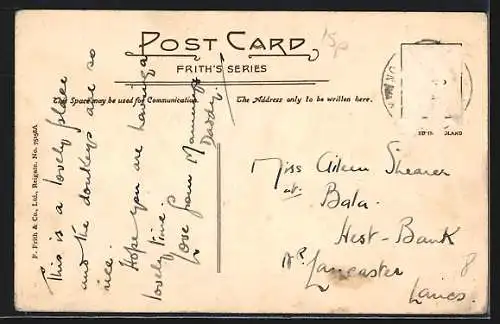 POST CARD
FRITH'S SERIES
The Space may be used for Communication.
The Address only to be written here.
F. Frith & Co., Ltd., Reigate. No.
15p
This is a lovely place
and the donkeys are so
nice.
Hope you are having a
lovely time.
Love from Mummy &
Daddy.
Miss Aileen Shearer
at Bala.
Hest-Bank
Nr Lancaster
Lancs